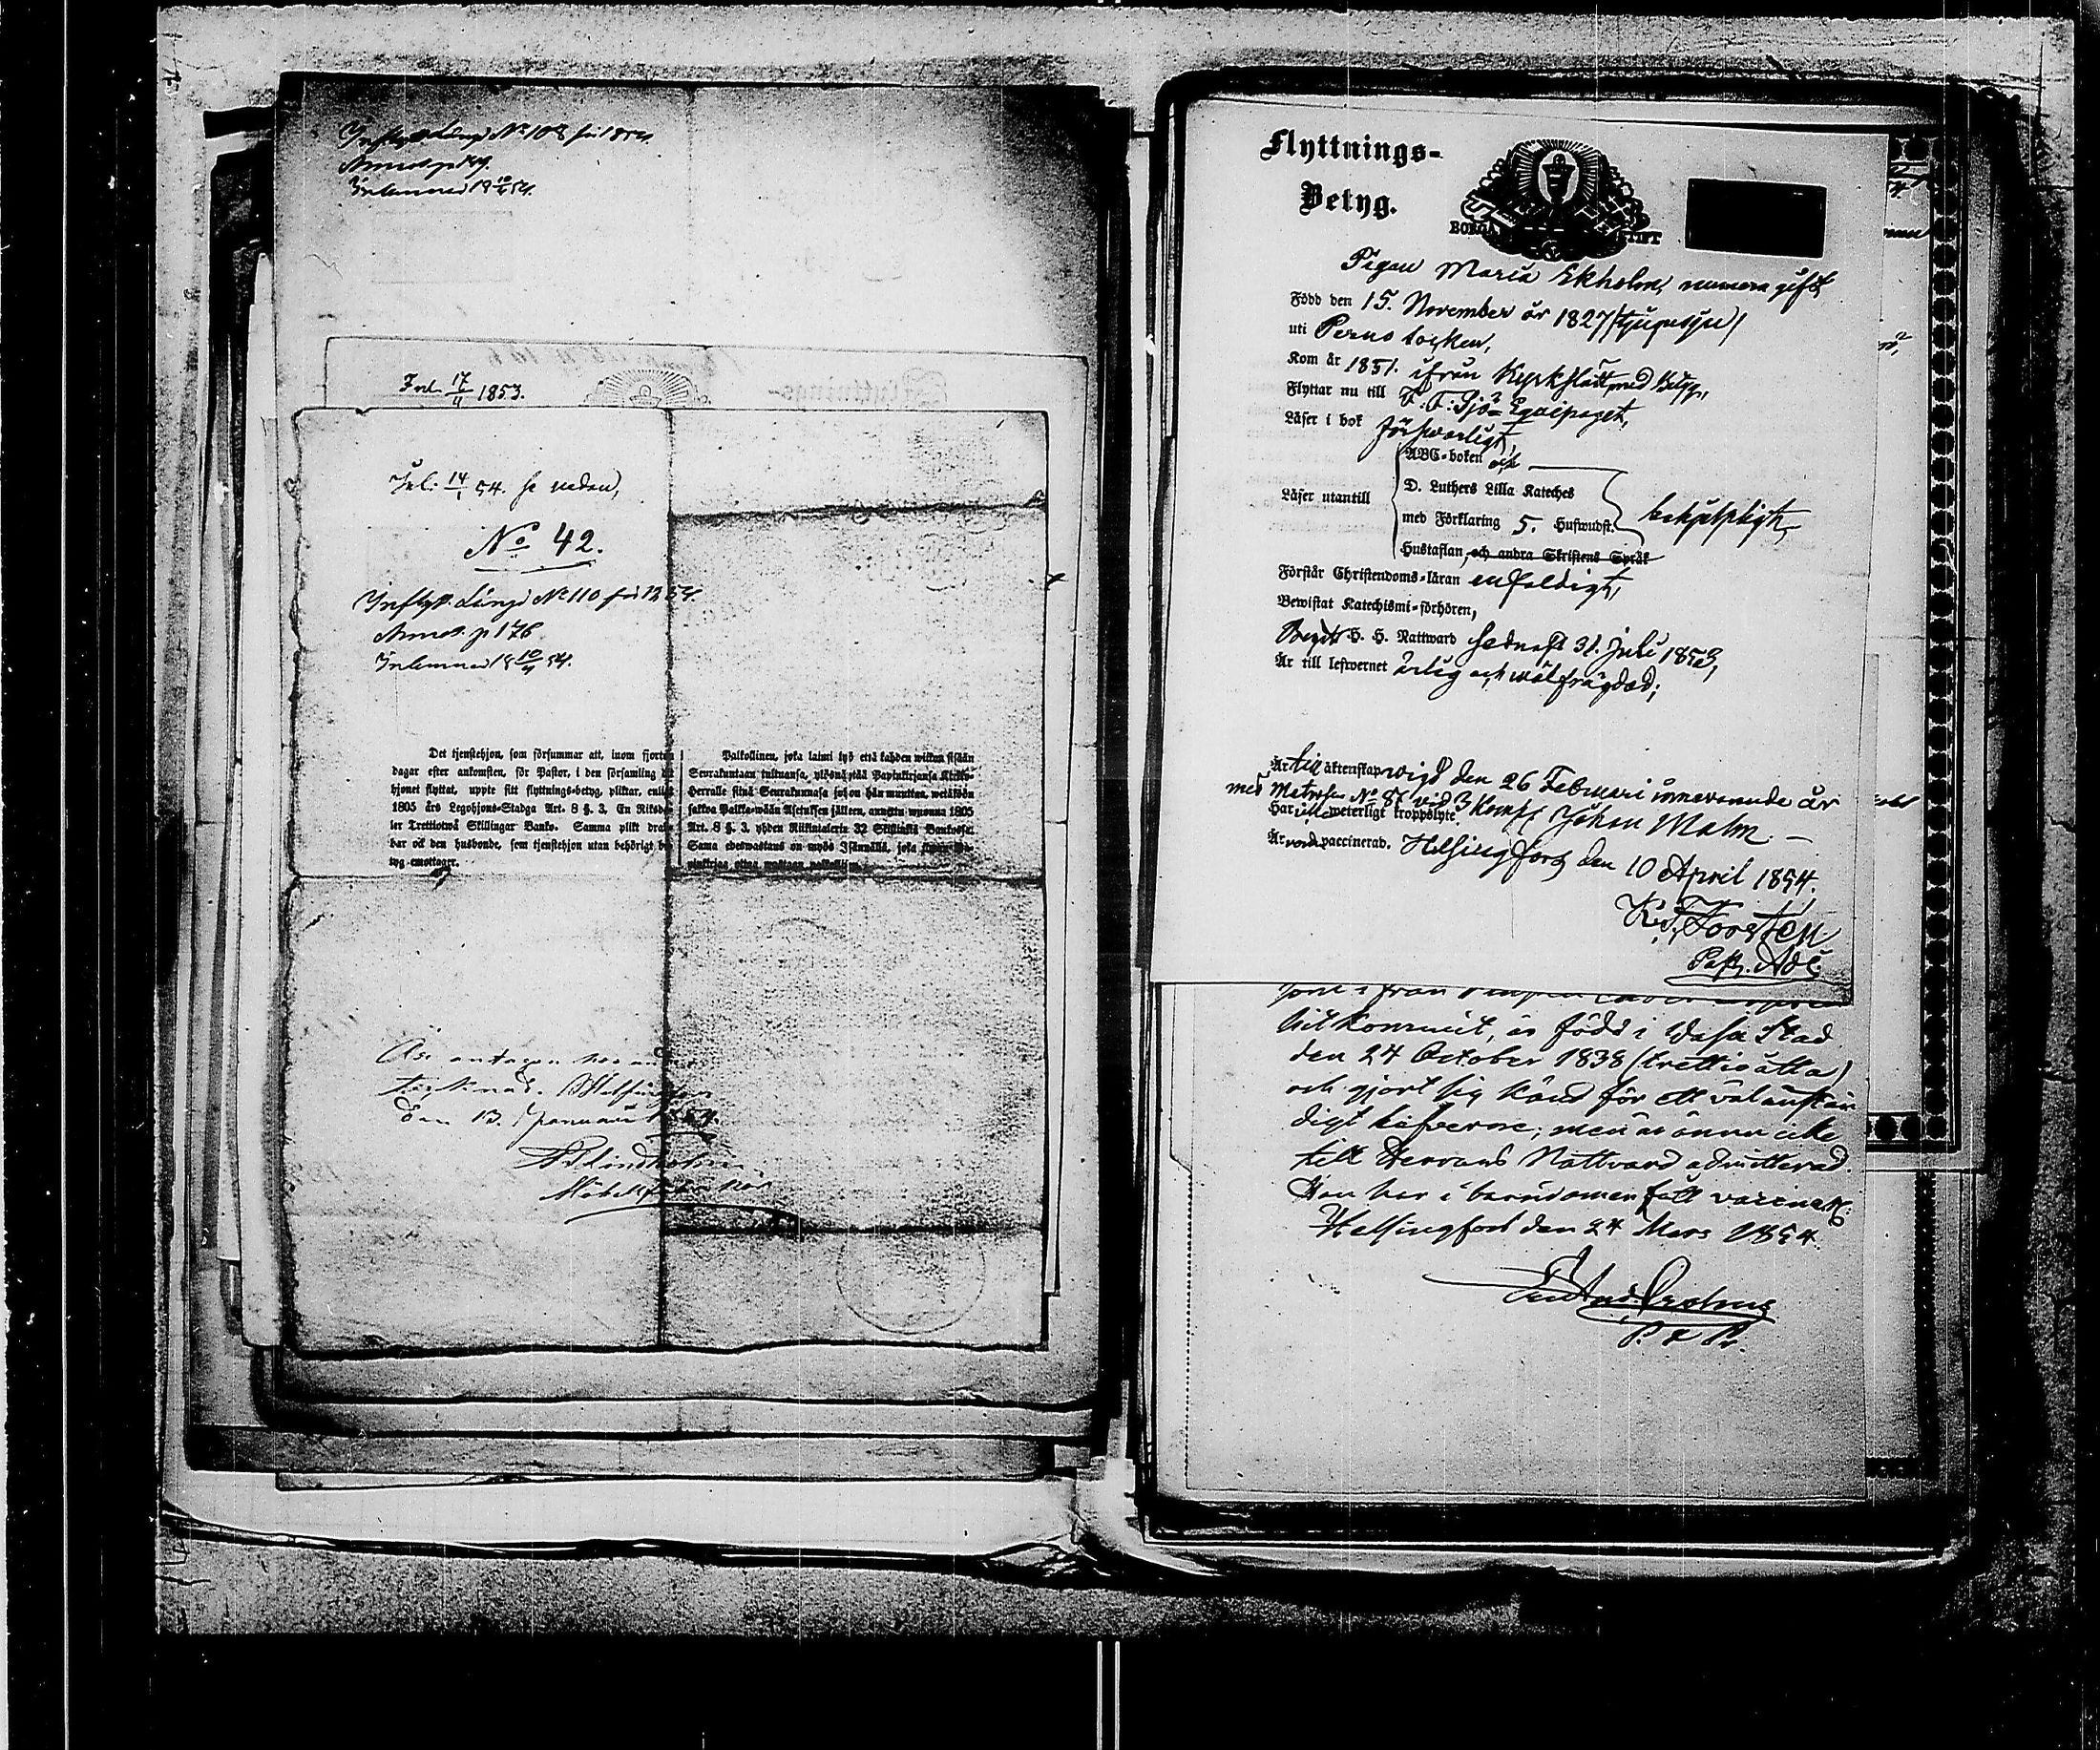 Inflytt. Längd No 108 för 1854.
Annot. p
Inlemnad 18 10/4 54.
Inl. 17/4 1853.
Flyttnings-
Inl: 14/1 54. se nedan,
No 42.
Inflytt. Längd No 110 för 1854.
Annot. p 176.
Inlemnad 18 10/4 54.
Det tjenstehjon, som försummar att, inom fjorton
dagar efter ankomsten, för Pastor, i den församling
hjonet flyttat, uppte sitt flyttnings-betyg, pliktar, enligt
1805 års Legohjons-Stadga Art. 8 §. 3. En Riksda-
ler Trettiotwå Skillingar Banko. Samma plikt drab-
bar ock den husbonde, som tjenstehjon utan behörigt be-
tyg emottager.
Palkollinen, joka laimi lyö että kahden wiikun sisään
Seurakuntaan tultuansa, ylösnäyttää Papinkirjansa Kirkko-
Herralle siinä Seurakunnasa johon hän muuttaa, wetäköön
sakkoa Palkka-wään Asetuksen jälkeen, annettu wuonna 1805
Art. 8 §. 3. yhden Riikintalerin 32 Skillinkiä Bankossa.
Sama edeswastaus on myös Isännällä, joka ilman Pa-
pinkirjaa ottaa wastaan palkollisen.
antagen hos
Helsingfors
den 13. Januarii 1854.
Lindholm
Flyttnings-
Betyg.
BORGÅ STIFT
Pigan Maria Ekholm, numera gift
Född den 15. November år 1827 (tjugusju)
uti Perno socken,
Kom år 1851. ifrån Kyrkslätt med betyg,
Flyttar nu till F. F. Sjö Equipaget,
Läser i bok försvarligt,
ABC-boken och
D. Luthers Lilla Kateches
Läser utantill
med Förklaring 5. Hufwudst.
behjelpligt
Hustaflan, och andra Skriftens Språk
Förstår Christendoms-läran enfaldigt,
Bewistat Katechismi-förhören,
Begått H. H. Nattward sednast 31. Juli 1853,
Är till lefwernet ärlig och wälfrägdad;
Är till äktenskap wigd den 26 Februari innevarande år
med Matrosen No 87 vid 3 Komp. Johan Malm. —
Har icke weterligt kroppslyte.
Är vaccinerad. Helsingfors den 10 April 1854.
K. J. Forstén
Past. Adj.
hit kommit, är född i Wasa Stad
den 24 October 1838 (trettioåtta)
och gjort sig känd för ett väl anstän
digt lefverne; men är ännu icke
till Herrans Nattvard admitterad.
Hon har i barndomen haft vaccin.
Helsingfors den 24 Mars 1854.